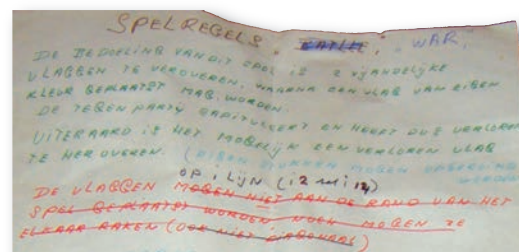 SPELREGELS, BATTLE, „WAR."
DE BEDOELING VAN DIT SPEL IS 2 VIJANDELIJKE
VLAGGEN TE VEROVEREN, WAARNA EEN VLAG VAN EIGEN
KLEUR GEPLAATST MAG WORDEN.
DE TEGENPARTY CAPITULEERT EN HEEFT DUS VERLOREN
UITERAARD IS HET MOGELIJK EEN VERLOREN VLAG
TE HEROVEREN. (EIGEN STUKKEN MOGEN OPGERUIMD
WORDEN
OP 1 LIJN (12 min 14)
DE VLAGGEN MOGEN NIET AAN DE RAND VAN HET
SPEL GEPLAATST WORDEN NOCH MOGEN ZE
ELKAAR RAKEN (OOK NIET DIAGONAAL)